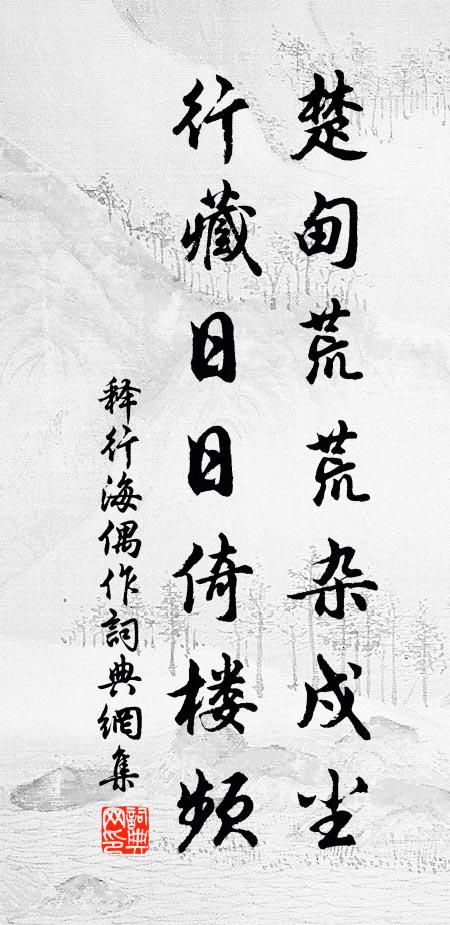 楚甸荒荒杂戍尘
行藏日日倚楼频
释行海偶作詞典網集
詞典
网印